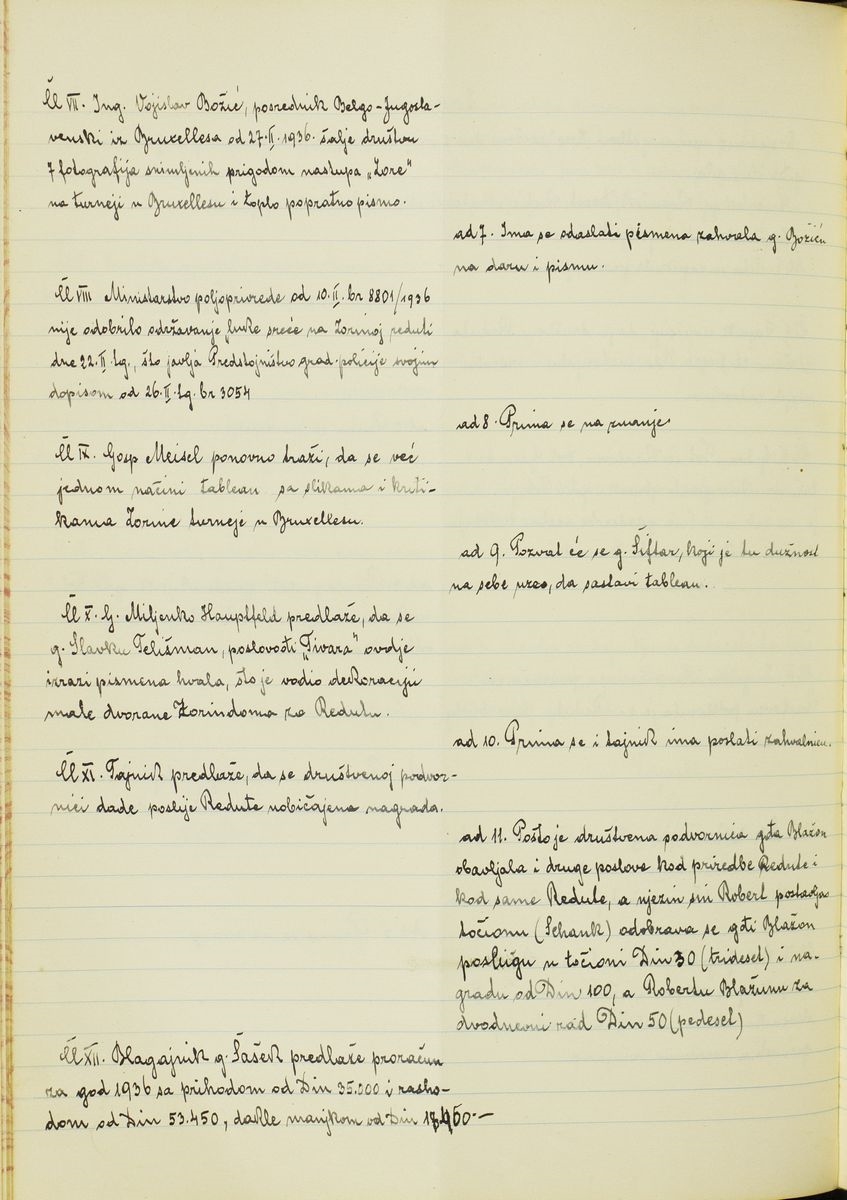 Čl VII. Ing. Vojislav Božić, posrednik Belgo-Jugosla-
venski iz Bruxellesa od 27.II.1936. šalje društvu
7 fotografija snimljenih prigodom nastupa „Zore"
na turneji u Bruxellesu i toplo popratno pismo.
ad 7. Ima se odaslati pismena zahvala g. Božiću
na daru i pismu.
Čl VIII Ministarstvo poljoprivrede od 10.II. br 8801/1936
nije odobrilo održavanje sreće na Zorinoj reduti
dne 22.II.tg., što javlja Predstojništvo grad. policije svojim
dopisom od 26.II.tg. br 3054
ad 8. Prima se na znanje
Čl IX. Gosp Meisel ponovno traži, da se već
jednom načini tableau sa slikama i kriti-
kama Zorine turneje u Bruxellesu.
ad 9. Pozvat će se g. Šiftar, koji je tu dužnost
na sebe uzeo, da sastavi tableau.
Čl X. G. Miljenko Hauptfeld predlaže, da se
g. Slavku Telišman, poslovođi „Tivara" ovdje
izrazi pismena hvala, što je vodio dekoraciju
male dvorane Zorindoma za Redutu.
ad 10. Prima se i tajnik ima poslati zahvalnicu.
Čl XI. Tajnik predlaže, da se društvenoj podvor-
nici dade poslije Redute uobičajena nagrada.
ad 11. Pošto je društvena podvornica gđa Blažon
obavljala i druge poslove kod priredbe Redute i
kod same Redute, a njezin sin Robert postavljao
točionu (Schank) odobrava se gđi Blažon
poslugu u točioni Din 30 (trideset) i na-
gradu od Din 100, a Robertu Blažunu za
dvodnevni rad Din 50 (pedeset)
Čl XII. Blagajnik g. Šašek predlaže proračun
za god 1936 sa prihodom od Din 35.000 i rasho-
dom od Din 53.450, dakle manjkom od Din